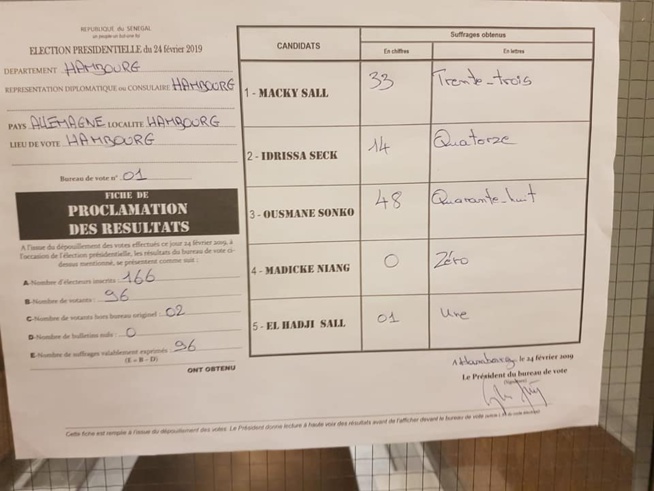 REPUBLIQUE DU SENEGAL
un peuple-un but-une foi
ELECTION PRESIDENTIELLE DU 24 février 2019
DEPARTEMENT HAMBOURG
REPRESENTATION DIPLOMATIQUE OU CONSULAIRE HAMBOURG
PAYS ALLEMAGNE LOCALITE HAMBOURG
LIEU DE VOTE HAMBOURG
Bureau de vote n° 01
FICHE DE
PROCLAMATION
DES RESULTATS
A l'issue du dépouillement des votes effectués ce jour 24 février 2019, à
l'occasion de l'élection présidentielle, les résultats du bureau de vote ci-
dessus mentionné, se présentent comme suit :
A-Nombre d'électeurs inscrits 166
B-Nombre de votants : 96
C-Nombre de votants hors bureau originel : 02
D-Nombre de bulletins nuls : 0
E-Nombre de suffrages valablement exprimés : 96
(E = B - D)
ONT OBTENU
CANDIDATS
Suffrages obtenus
En chiffres En lettres
1 - MACKY SALL 33 Trente-trois
2 - IDRISSA SECK 14 Quatorze
3 - OUSMANE SONKO 48 Quarante-huit
4 - MADICKE NIANG 0 Zéro
5 - EL HADJI SALL 01 Une
A Hambourg, le 24 février 2019
Le Président du bureau de vote
(Signature)
Cette fiche est remplie à l'issue du dépouillement des votes. Le Président donne lecture à haute voix des résultats avant de l'afficher devant le bureau de vote